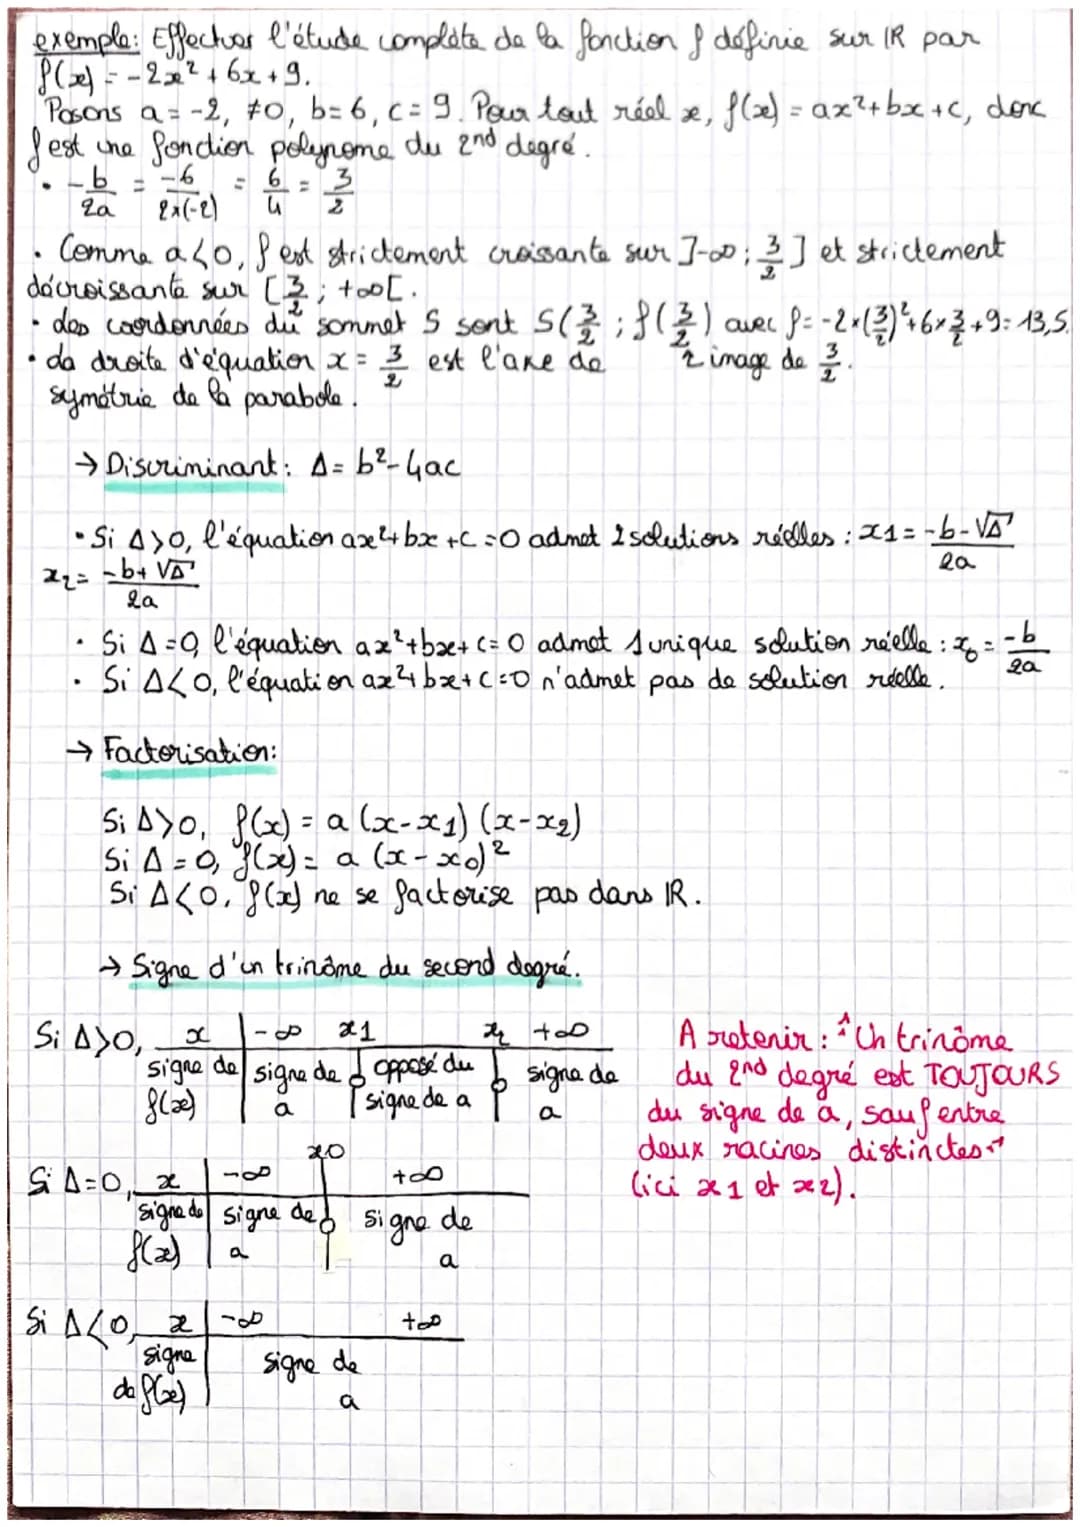 exemple: Effectuer l'étude complète de la fonction f définie sur IR par
f(x) = -2x² + 6x + 9.
Posons a = -2, ≠0, b = 6, c = 9. Pour tout réel x, f(x) = ax²+bx+c, donc
f est une fonction polynome du 2nd degré.
• -b/2a = -6/2×(-2) = 6/4 = 3/2
• Comme a<0, f est strictement croissante sur ]-∞; 3/2] et strictement
décroissante sur [3/2; +∞[.
• Les coordonnées du sommet S sont S(3/2; f(3/2) avec f = -2×(3/2)²+6×3/2+9 = 13,5.
• La droite d'équation x = 3/2 est l'axe de
↳ image de 3/2.
symétrie de la parabole.
→ Discriminant: Δ = b²-4ac
• Si Δ>0, l'équation ax²+bx+c=0 admet 2 solutions réelles : x1 = -b-√Δ/2a
x2 = -b+√Δ/2a
• Si Δ=0, l'équation ax²+bx+c=0 admet 1 unique solution réelle : x0 = -b/2a
• Si Δ<0, l'équation ax²+bx+c=0 n'admet pas de solution réelle.
→ Factorisation:
Si Δ>0, f(x) = a(x-x1)(x-x2)
Si Δ=0, f(x) = a(x-x0)²
Si Δ<0, f(x) ne se factorise pas dans IR.
→ Signe d'un trinôme du second degré.
Si Δ>0, x -∞ x1 x2 +∞
signe de f(x) signe de a 0 opposé du signe de a 0 signe de a
A retenir : "Un trinôme
du 2nd degré est TOUJOURS
du signe de a, sauf entre
deux racines distinctes"
(ici x1 et x2).
Si Δ=0, x -∞ x0 +∞
signe de f(x) signe de a 0 signe de a
Si Δ<0, x -∞ +∞
signe de f(x) signe de a